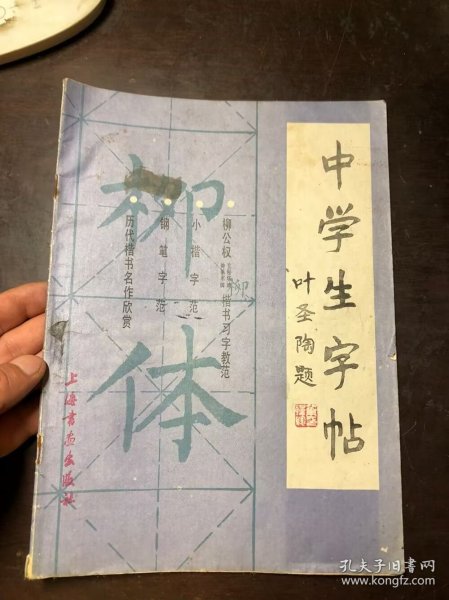 中学生字帖
叶圣陶题
柳公权
楷书习字教范
柳
小楷字范
钢笔字范
历代楷书名作欣赏
柳体
上海书画出版社
孔夫子旧书网
www.kongfz.com